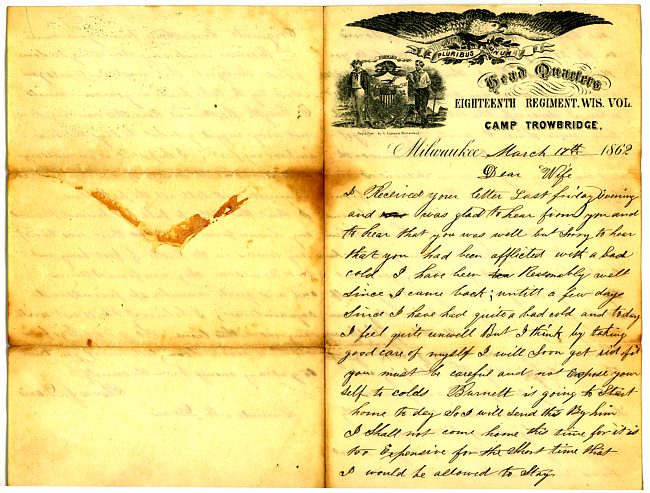 E PLURIBUS UNUM
Head Quarters
EIGHTEENTH REGIMENT. WIS. VOL.
CAMP TROWBRIDGE,
Milwaukee March 10th 1862
Dear Wife
I Received your letter Last friday Evening
and was glad to hear from you and
to hear that you was well but Sorry to hear
that you had been afflicted with a bad
cold I have been Reasonably well
Since I came back untill a few days
Since I have had quite a bad cold and to day
I feel quite unwell But I think by taking
good care of myself I will Soon get rid of it
you must be careful and not Expose your
self to colds Burnett is going to Start
home to day So I will Send this By him
I Shall not come home this time for it is
too Expensive for the Short time that
I would be allowed to Stay